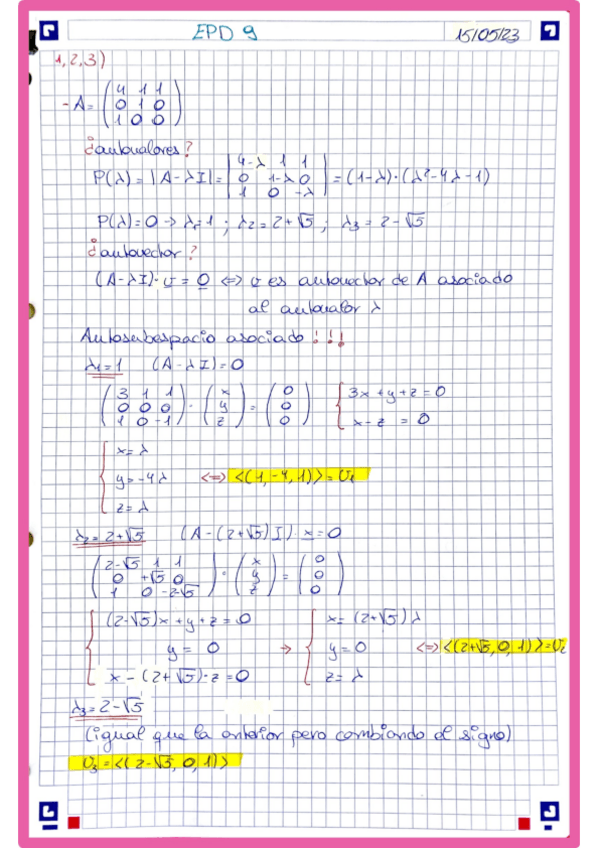 EPD 9
15/05/23
1,2,3)
- A = ( 4 1 1
0 1 0
1 0 0 )
¿autovalores?
P(λ) = |A-λI| = | 4-λ 1 1
0 1-λ 0
1 0 -λ | = (1-λ)·(λ²-4λ-1)
P(λ)=0 → λ₁=1 ; λ₂=2+√5 ; λ₃=2-√5
¿autovector?
(A-λI)·v = 0 <=> v es autovector de A asociado
al autovalor λ
Autosubespacio asociado!!!
λ₁=1 (A-λI)=0
( 3 1 1
0 0 0
1 0 -1 ) · ( x
y
z ) = ( 0
0
0 ) { 3x+y+z=0
x-z = 0
{ x=λ
y=-4λ <=> <(1,-4,1)> = U₁
z=λ
λ₂=2+√5 (A-(2+√5)I)·x=0
( 2-√5 1 1
0 +√5 0
1 0 -2-√5 ) · ( x
y
z ) = ( 0
0
0 )
{ (2-√5)x+y+z=0
y= 0
x-(2+√5)·z=0
→ { x=(2+√5)λ
y=0 <=> <(2+√5,0,1)>=U₂
z=λ
λ₃=2-√5
(igual que la anterior pero cambiando el signo)
U₃=<(2-√5,0,1)>